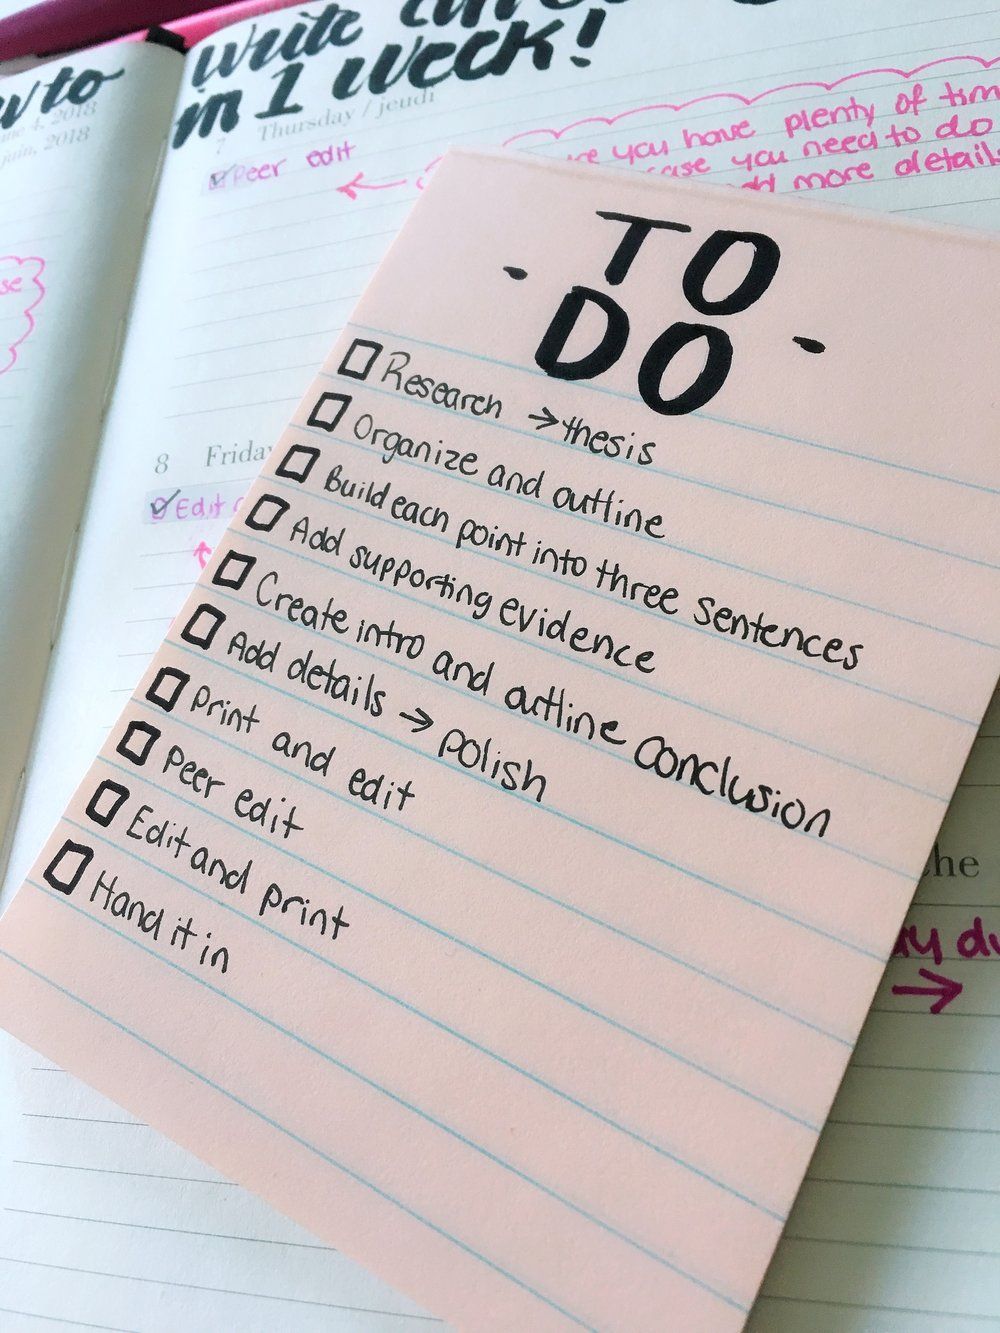 to
Write
in 1 week!
June 4, 2018
juin, 2018
7 Thursday / jeudi
Peer edit
you have plenty of
you need to do
more details
TO
- DO -
Research → thesis
Organize and outline
Build each point into three sentences
Add supporting evidence
Create intro and outline conclusion
Add details → polish
Print and edit
Peer edit
Edit and print
Hand it in
8
Edit